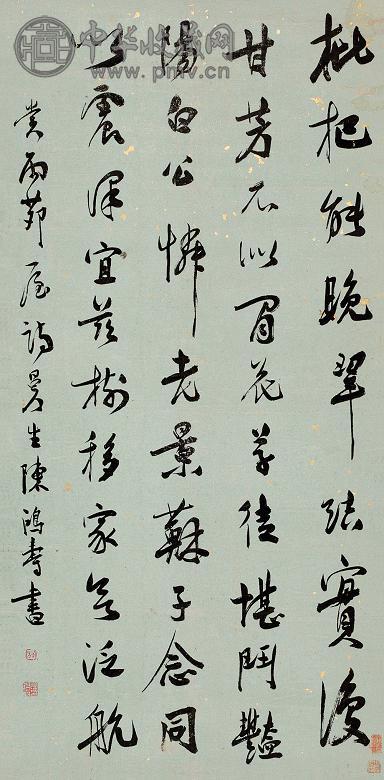 中华收藏网
www.pmv.cn
枇杷能晚翠結實復
甘芳不似閒花草徒堪鬥豔
陽白公憐老景蘇子念同
鄉震澤宜茲樹移家泛航
賞雨茆屋詩曼生陳鴻壽書